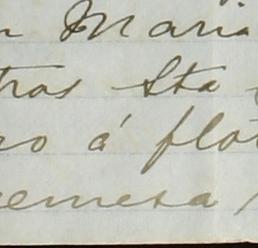 Maria
tros Sta
ro á flot
remesa